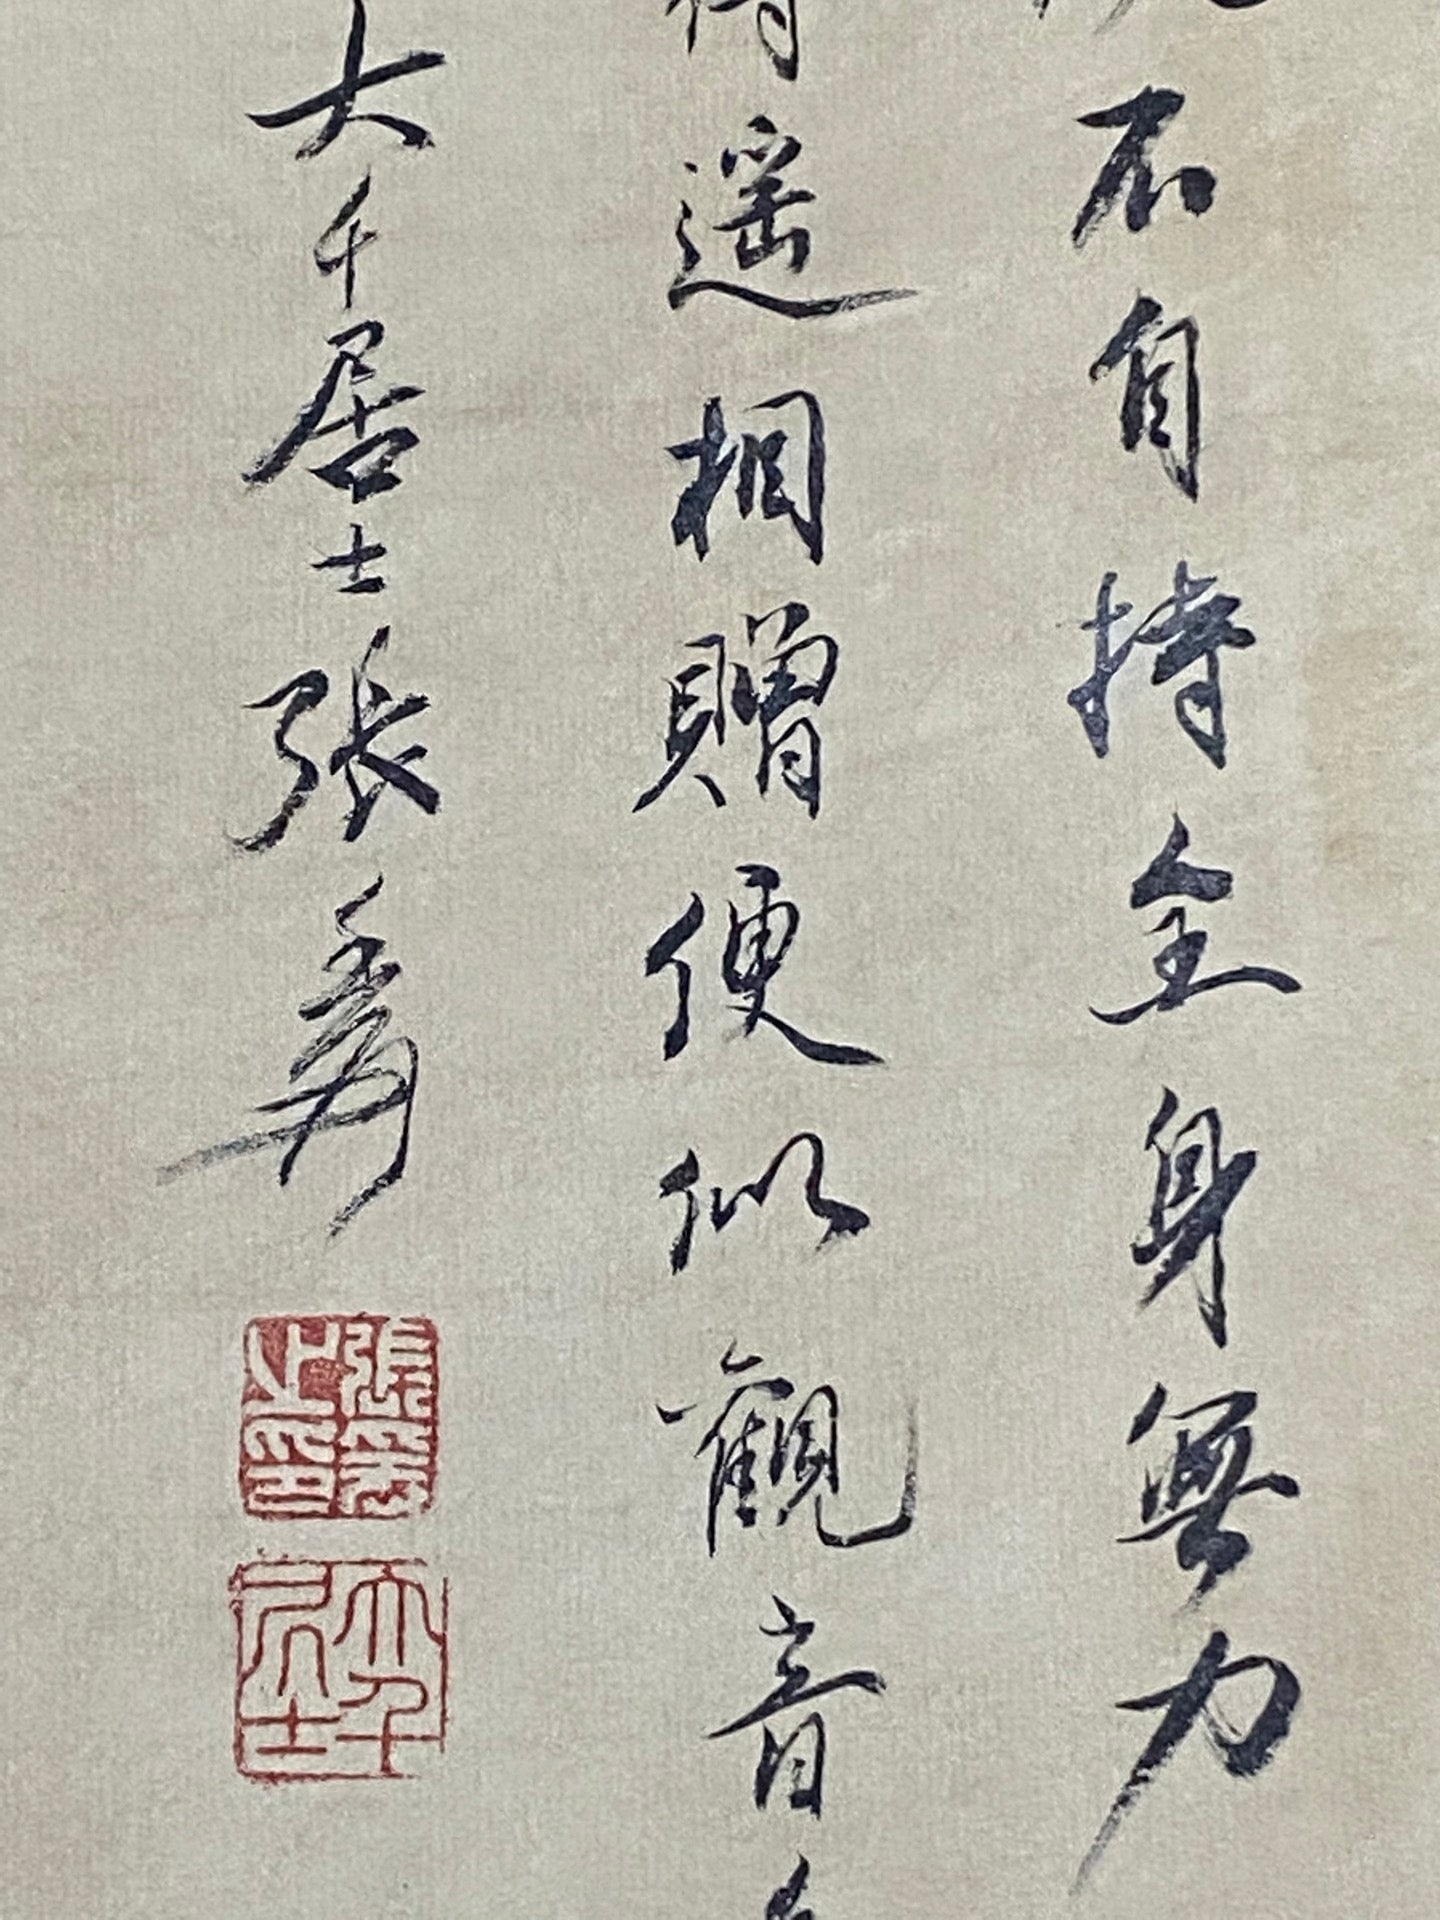 不自持全身無力
遥相贈便似觀音
大千居士張爰
張爰之印
大千居士